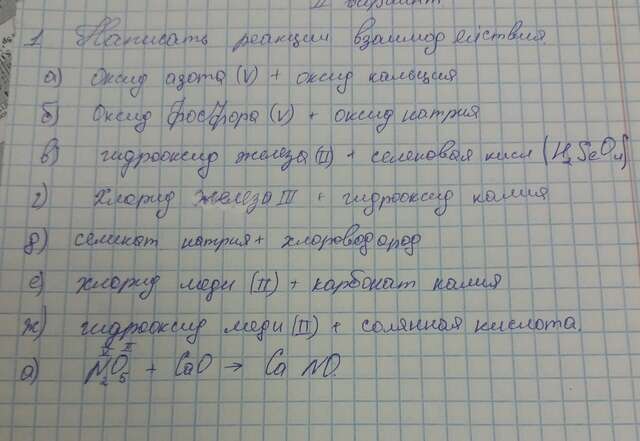 II вариант
1 Написать реакции взаимодействия.
а) Оксид азота (V) + оксид кальция
б) Оксид фосфора (V) + оксид натрия
в) гидрооксид железа (II) + селеновая кисл (H₂SeO₄)
г) хлорид железа III + гидрооксид калия
д) силикат натрия + хлороводород
е) хлорид меди (II) + карбонат калия
ж) гидрооксид меди (II) + солянная кислота.
V II
а) N₂O₅ + CaO → Ca NO